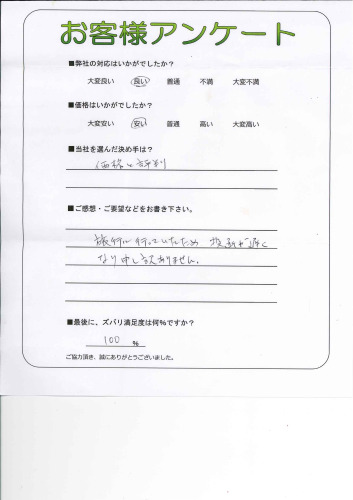 お客様アンケート
■弊社の対応はいかがでしたか？
大変良い 良い 普通 不満 大変不満
■価格はいかがでしたか？
大変安い 安い 普通 高い 大変高い
■当社を選んだ決め手は？
価格と評判
■ご感想・ご要望などをお書き下さい。
旅行に行っていたため 投函が遅く
なり申し訳ありません。
■最後に、ズバリ満足度は何%ですか？
100 %
ご協力頂き、誠にありがとうございました。